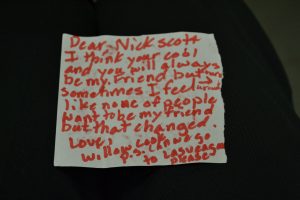 Dear, Nick scott
I think your cool
and you will always
be my friend but
sometimes I feel
like none of people
want to be my friend
but that changed.
Love,
Willow
P.S. Can we go
to Lasvegas
please